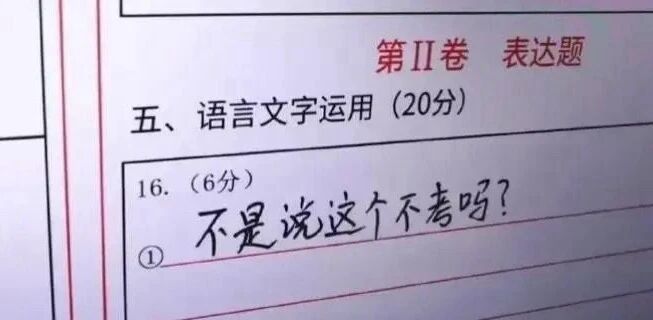 第II卷 表达题
五、语言文字运用（20分）
16.（6分）
① 不是说这个不考吗？